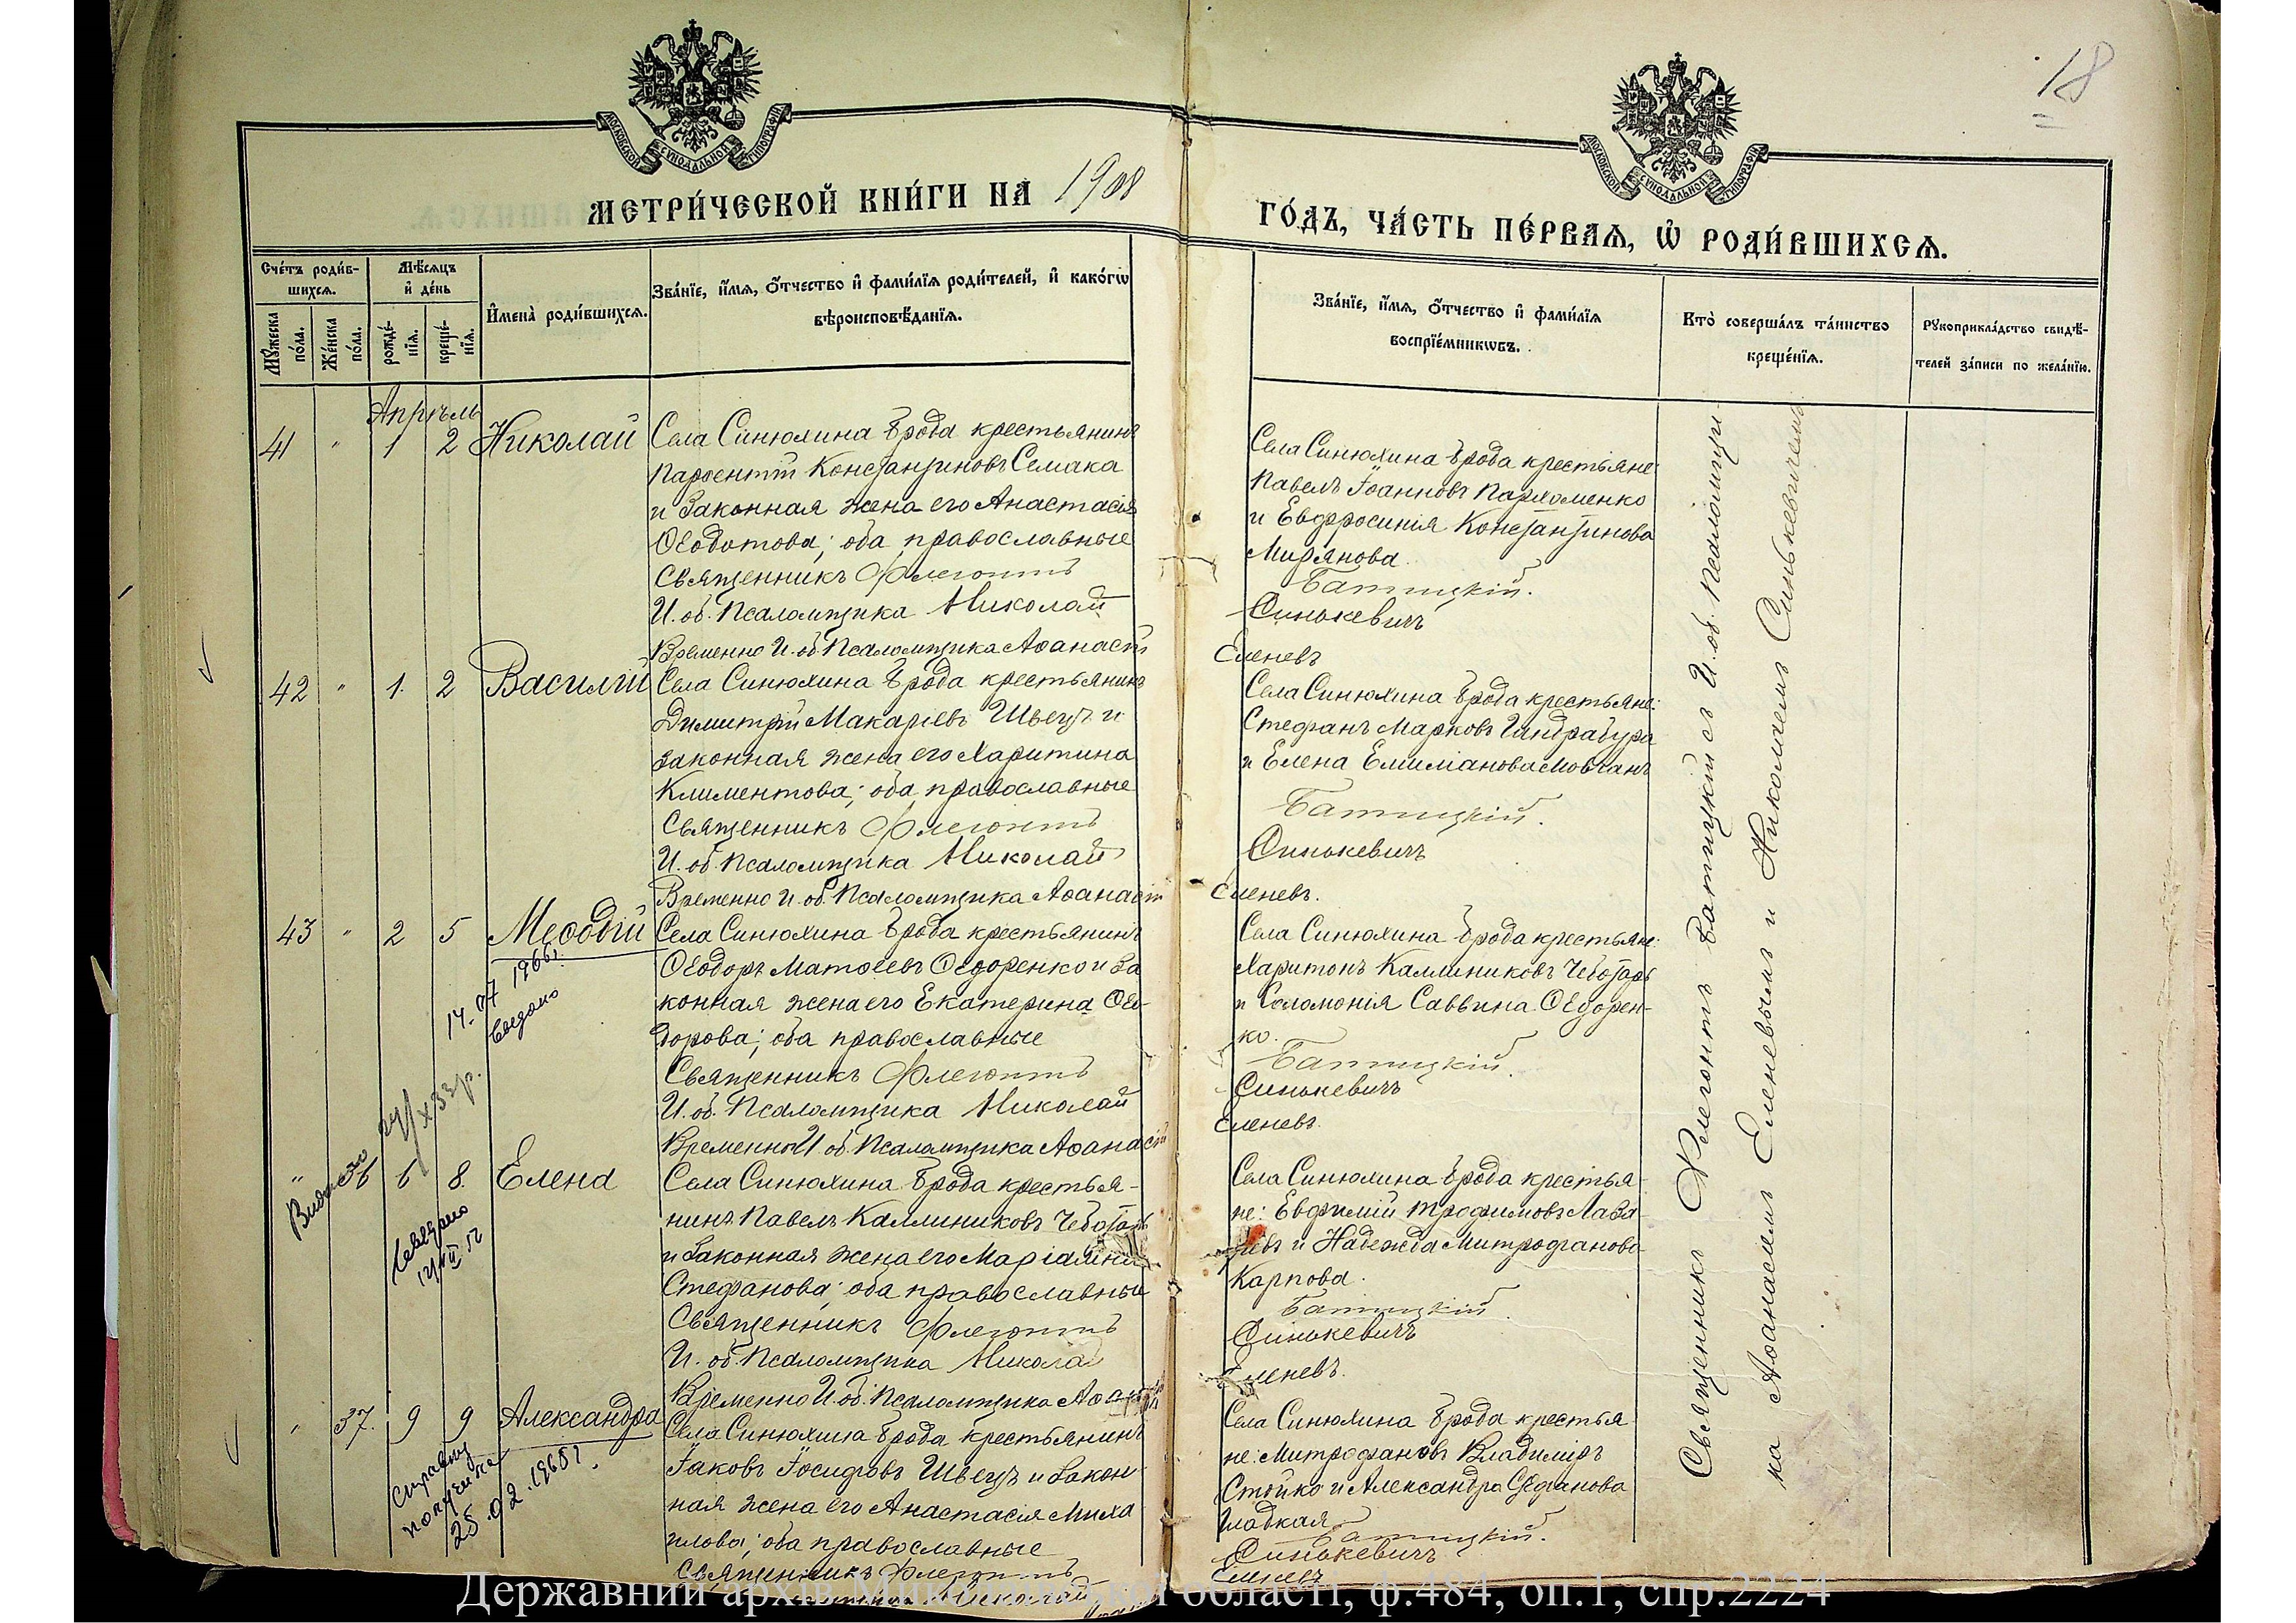 18
МОСКОВСКОЙ СУНОДАЛЬНОЙ ТИПОГРАФІИ
МОСКОВСКОЙ СУНОДАЛЬНОЙ ТИПОГРАФІИ
МЕТРИ́ЧЕСКОЙ КНИ́ГИ НА 1908
ГО́ДЪ, ЧА́СТЬ ПЕ́РВАѦ, Ѽ РОДИ́ВШИХСѦ.
Сче́тъ роди́в-
шихсѧ.
Мѣ́сѧцъ
и҆ де́нь
Мꙋ́жеска
по́ла.
Же́нска
по́ла.
рожде́-
нїѧ.
креще́-
нїѧ.
И҆мена̀ роди́вшихсѧ.
Зва́нїе, и҆́мѧ, ѻ҆́тчество и҆ фами́лїѧ роди́телей, и҆ како́гѡ
вѣроисповѣ́данїѧ.
Зва́нїе, и҆́мѧ, ѻ҆́тчество и҆ фами́лїѧ
воспрїе́мникѡвъ.
Кто̀ соверша́лъ та́инство
креще́нїѧ.
Рꙋкоприкла́дство свидѣ́-
телей за́писи по жела́нїю.
Апрѣль
41 " 1 2 Николай
Села Синюхина Брода крестьянинъ
Парѳентій Константиновъ Семака
и законная жена его Анастасія
Ѳеодотова; оба православные
Священникъ Флегонтъ
И. об. Псаломщика Николай
Временно И. об. Псаломщика Аѳанасій
Села Синюхина Брода крестьяне:
Павелъ Іоанновъ Пархоменко
и Евфросинія Константинова
Мирянова.
Батицкій.
Синькевичъ
Еленевъ
42 " 1. 2 Василій
Села Синюхина Брода крестьянинъ
Димитрій Макаріевъ Швецъ и
законная жена его Харитина
Климентова; оба православные
Священникъ Флегонтъ
И. об. Псаломщика Николай
Временно И. об. Псаломщика Аѳанасій
Села Синюхина Брода крестьяне:
Стефанъ Марковъ
и Елена Емиліанова Мовчанъ
Батицкій.
Синькевичъ
Еленевъ.
43 " 2 5 Меѳодій
14.07 1966г.
Села Синюхина Брода крестьянинъ
Ѳеодоръ Матѳеевъ Ѳедоренко и за
конная жена его Екатерина Ѳео-
дорова; оба православные
Священникъ Флегонтъ
И. об. Псаломщика Николай
Временно И. об. Псаломщика Аѳанасій
Села Синюхина Брода крестьяне:
Харитонъ Каллиниковъ Чеботарь
и Соломонія Саввина Ѳедорен-
ко.
Батицкій.
Синькевичъ
Еленевъ.
" 36 6 8. Елена
Села Синюхина Брода крестья-
нинъ Павелъ Каллиниковъ Чеботарь
и законная жена его Маріамна
Стефанова; оба православные
Священникъ Флегонтъ
И. об. Псаломщика Николай
Временно И. об. Псаломщика
Села Синюхина Брода крестья-
не: Евфимій Трофимовъ Лаза-
ревъ и Надежда Митрофанова
Карпова.
Батицкій.
Синькевичъ
Еленевъ.
" 37. 9 9 Александра
25.02.1965г.
Села Синюхина Брода крестьянинъ
Іаковъ Іосифовъ Швецъ и закон
ная жена его Анастасія Миха
илова; оба православные
Священникъ Флегонтъ
Николай
Села Синюхина Брода крестья
не: Митрофановъ Владиміръ
Стойко и Александра Стефанова
Гладкая.
Батицкій.
Синькевичъ
Еленевъ
Священникъ Флегонтъ Батицкій съ И. об. Псаломщи-
ка Аѳанасіемъ Еленевымъ и Николаемъ Синькевичемъ
Державний архів Миколаївської області, ф.484, оп.1, спр.2224